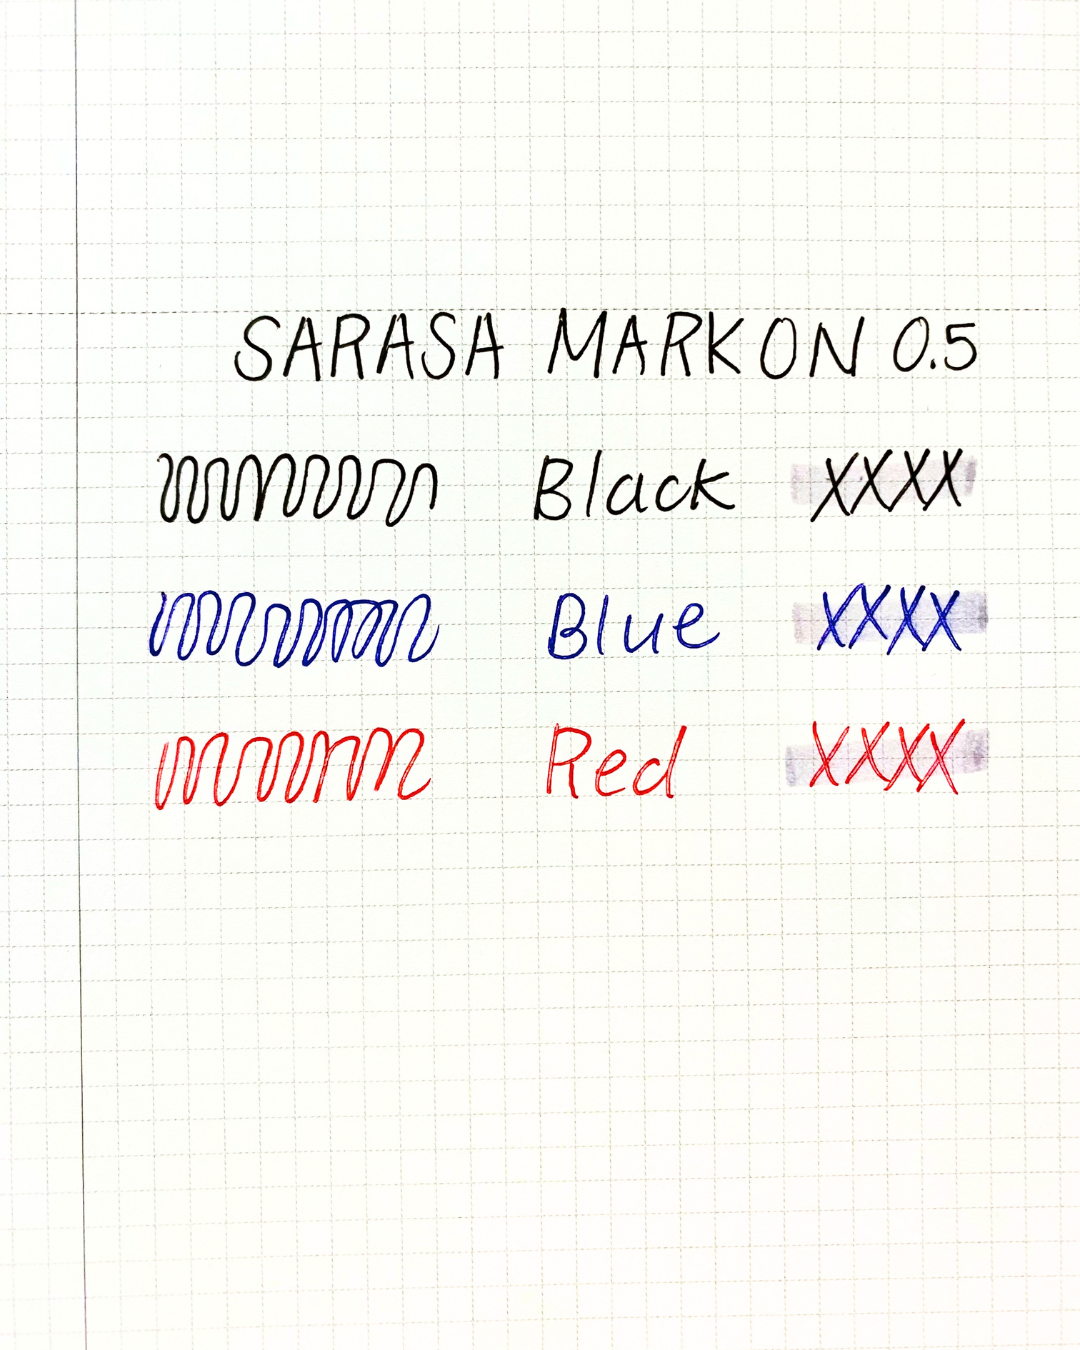 SARASA MARK ON 0.5
Black XXXX
Blue XXXX
Red XXXX